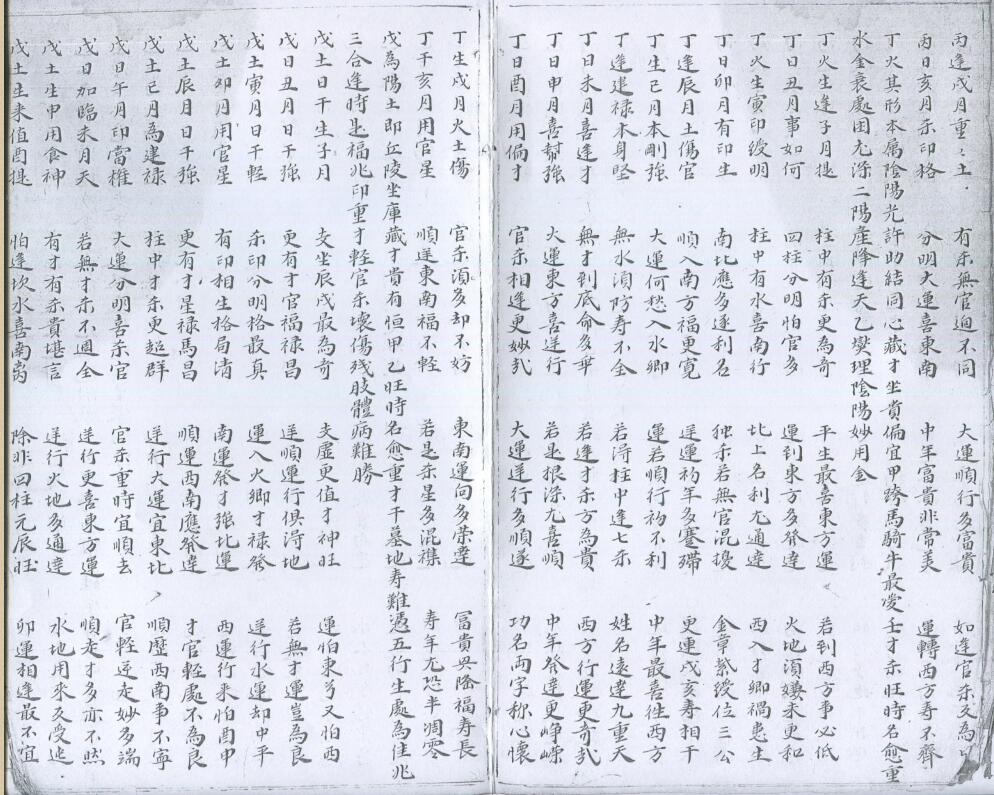 丙逢戌月重〻土 有杀無官迥不同 大運順行多富貴 如逢官杀反為
丙日亥月杀印格 分明大運喜東南 中年富貴非當美 運轉西方寿不齊
丁火其形本属陰陽光許助結同心藏才坐貴偏宜甲跨馬騎牛最爱壬才杀旺時名愈重
水金衰處困尤深二陽産降逢天乙燮理陰陽妙用金
丁火生逢子月提 柱中有杀更為奇 平生最喜東方運 若到西方事必低
丁日丑月事如何 四柱分明怕官多 運到東方多發達 火地須嫌未更和
丁火生寅印绶明 柱中有水喜南行 北上名利尤通達 西入才卿禍患生
丁日卯月有印生 南北應多遂利名 独杀若無官混擾 金章紫绶位三公
丁逢辰月土傷官 順入南方福更寛 逆運初年多蹇滯 更連戌亥寿相干
丁生巳月本剛强 大運何愁入水卿 運若順行初不利 中年最喜徃西方
丁逢建禄本身堅 無水須防寿不全 若得柱中逢七杀 姓名遠達九重天
丁日未月喜逢才 無才到底命多乖 若逢才杀方為貴 西方行運更奇㢤
丁日申月喜幫强 火運東方喜逆行 若是根深尤喜順 中年發達更崢嶸
丁日酉月用偏才 官杀相逢更妙㢤 大運逆行多順遂 功名両字称心懷
丁生戌月火土傷 官杀須多却不妨 東南運向多荣達 冨貴興隆福寿長
丁干亥月用官星 順逆東南福不輕 若是杀星多混襍 寿年尤恐半凋零
戊為陽土即丘陵坐庫藏才貴有恒甲乙旺時名愈重才干墓地寿難憑五行生處為佳兆
三合逢時是福兆印重才輕官杀壞傷残肢體病難勝
戊土日干生子月 支坐辰戌最為奇 支虚更值才神旺 運怕東方又怕西
戊日丑月日干强 更有才官福禄昌 逆順運行俱得地 若無才運豈為良
戊土寅月日干輕 杀印分明格最真 運入火卿才禄發 逆行水運却中平
戊土卯月用官星 有印相生格局清 南運發才强北運 西運行来怕酉申
戊土辰月日干强 更有才星禄馬昌 順運西南應發達 才官輕處不為良
戊土巳月為建禄 柱中才杀更超群 逆行大運宜東北 順歷西南事不寧
戊日午月印當權 大運分明喜杀官 官杀重時宜順去 官輕逆走妙多端
戊日加臨未月天 若無才杀不週全 逆行更喜東方運 順走才多亦不然
戊土生申用食神 有才有杀貴堪言 逆行火地多通達 水地用来反受迍
戊土生来值酉提 怕逢坎水喜南离 除非四柱元辰旺 卯運相逢最不宜